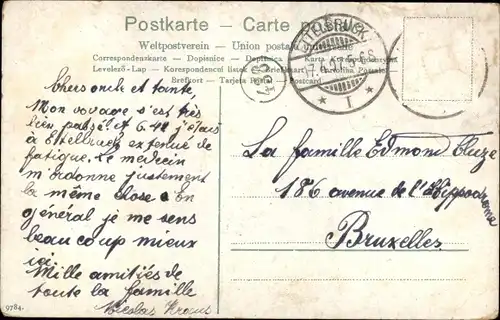 Postkarte — Carte postale
Weltpostverein - Union postale universelle
Correspondenzkarte - Dopisnice - Dopisnica - Karta korespondencyjna
Levelező-Lap - Korespondenční lístek - Cartolina Postale
Brefkort - Tarjeta Postal - Postcard
ETTELBRUCK
497
Chers oncle et tante,
Mon voyage s'est très
bien passé. A 6.42 j'étais
à Ettelbruck extenué de
fatigue. Le médecin
m'ordonne justement
la même chose. En
général je me sens
beaucoup mieux
ici.
Mille amitiés de
toute la famille
Nicolas Kraus
La famille Edmond
186 avenue de l'Hippodrome
Bruxelles.
9784.